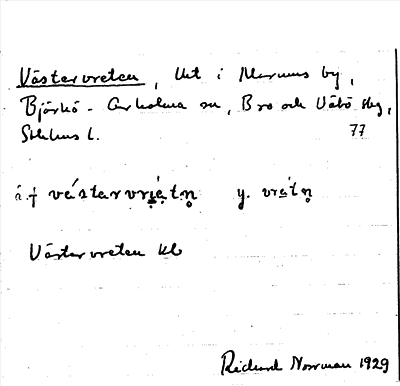 Västervreten, Urt i Marums by,
Björkö-Arholma sn, Bro och Vätö skg,
Sthlms l. 77
å.f västarvriẹtn̥ y. vrätn̥
Västervreten kb
Rickard Norrman 1929